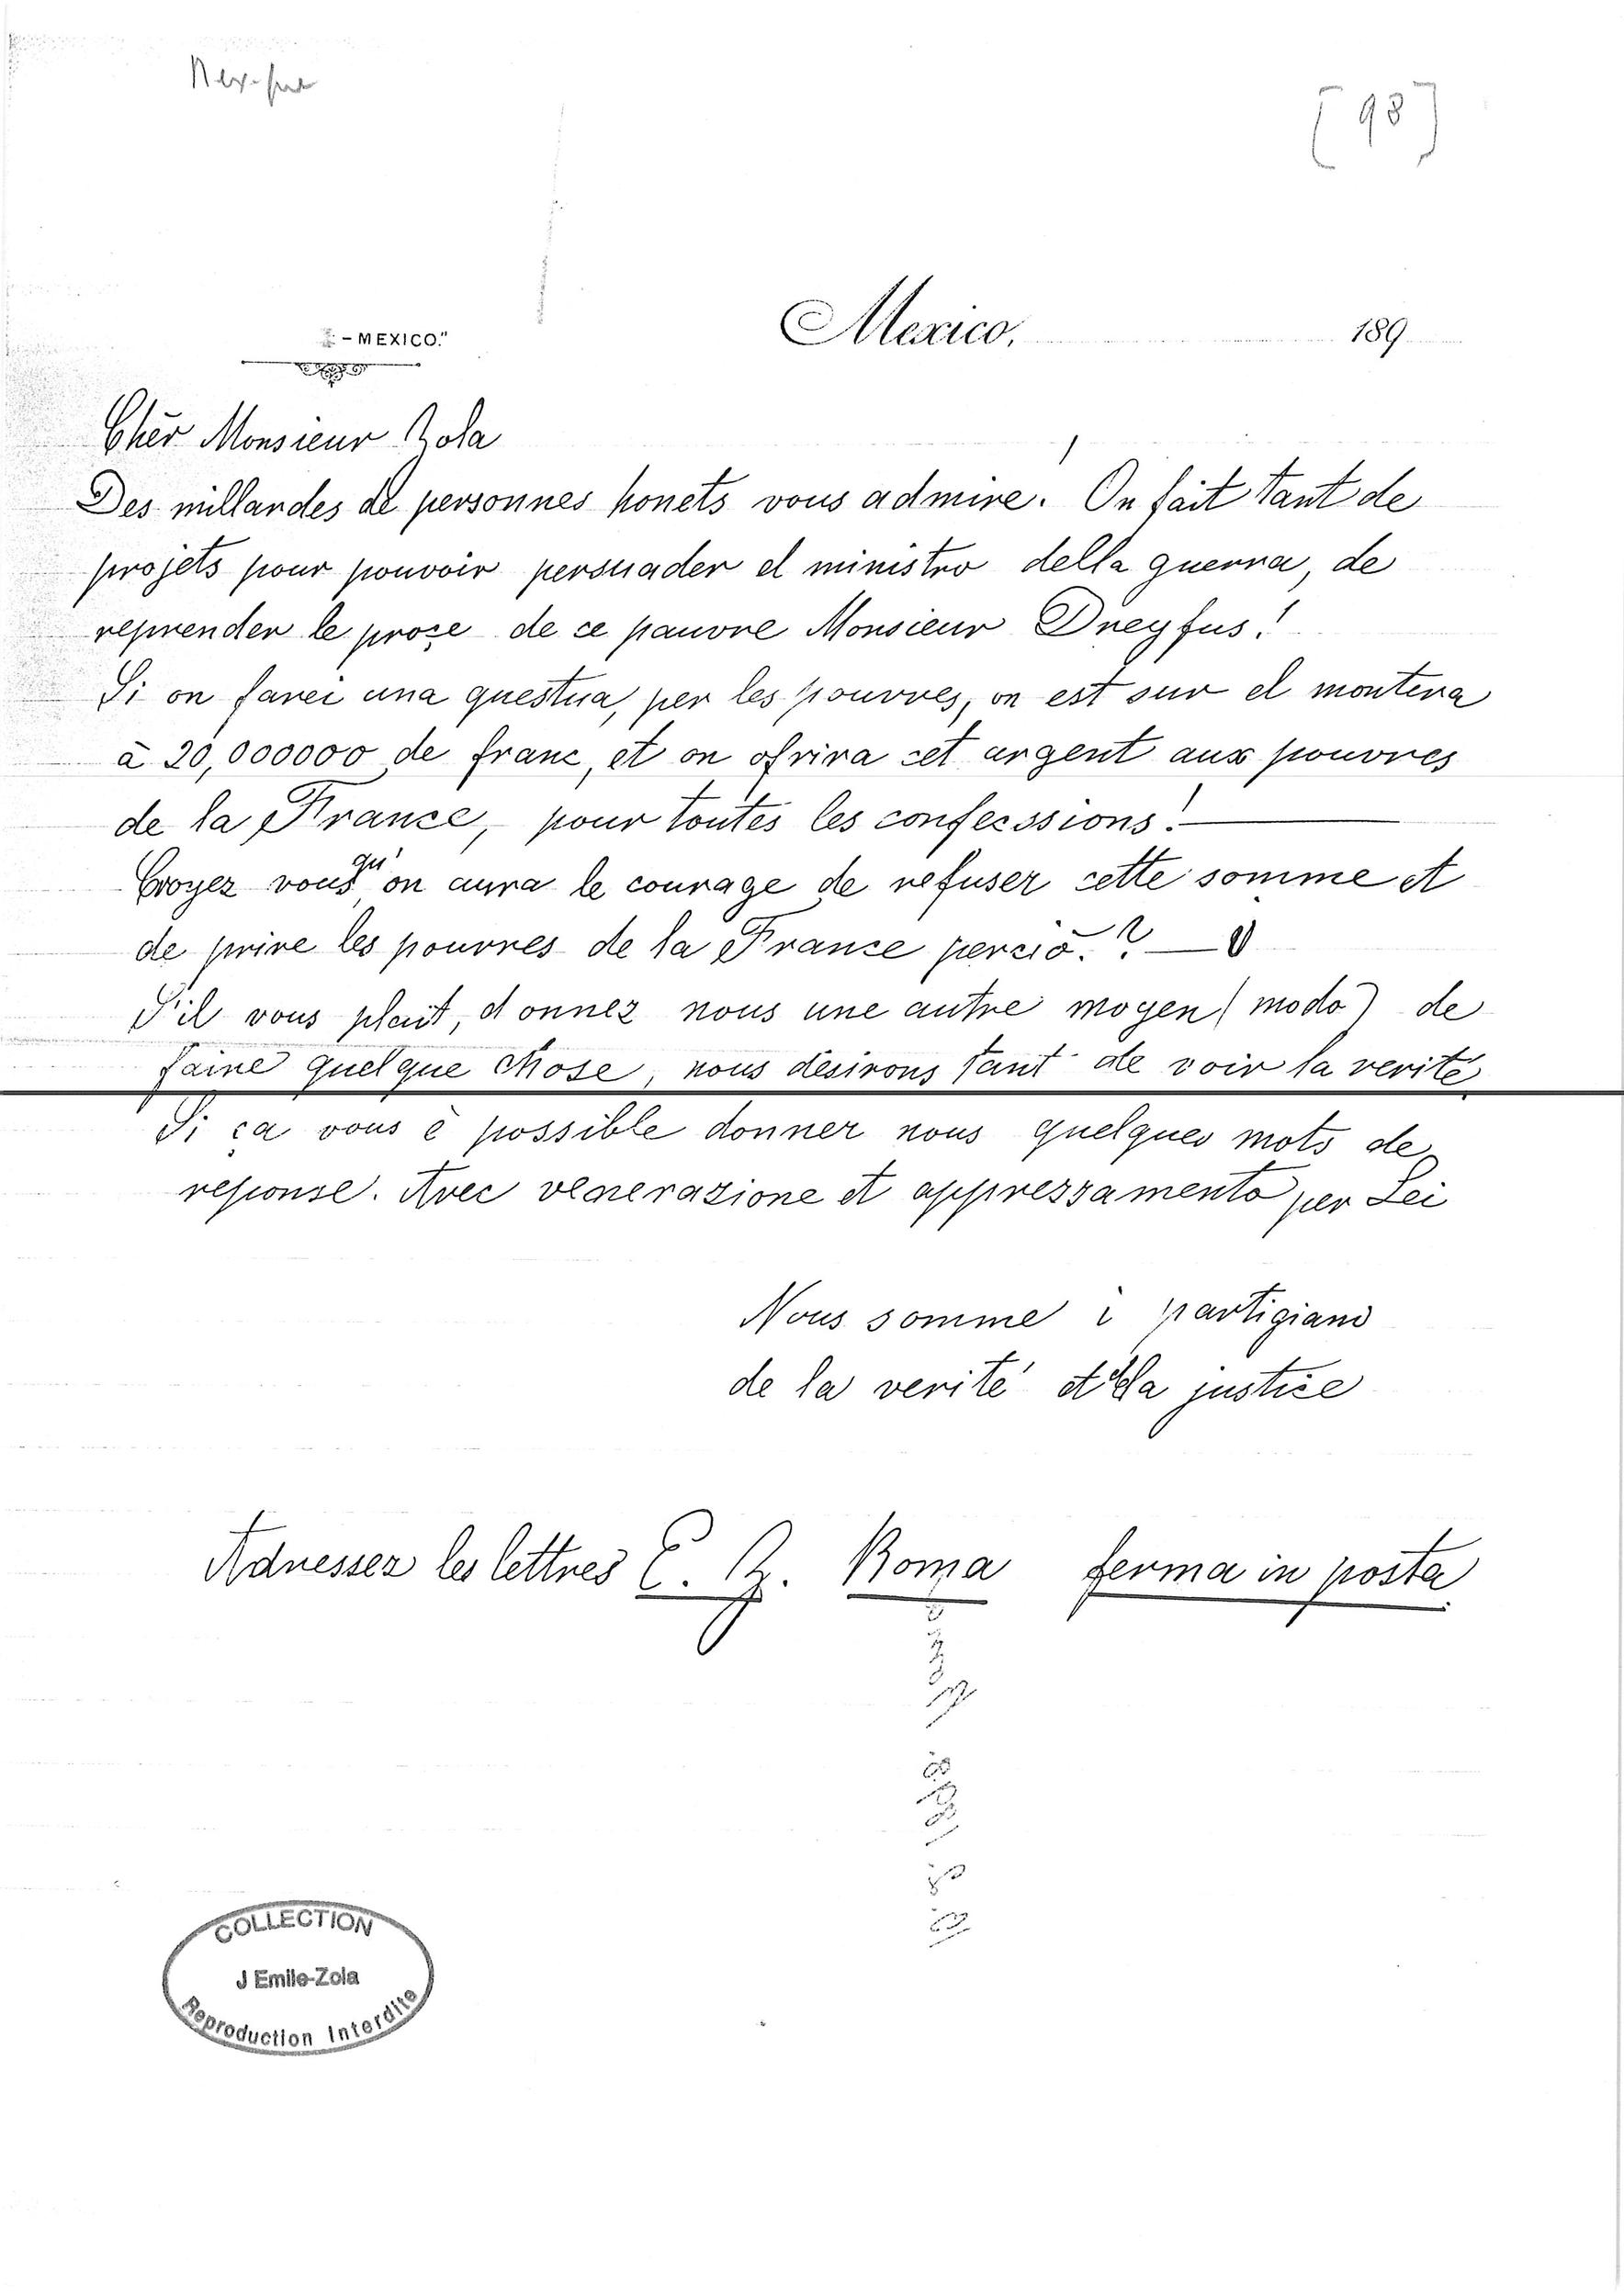 [98]
- MEXICO."
Mexico, 189
Cher Monsieur Zola
Des millardes de personnes honets vous admire. On fait tant de
projets pour pouvoir persuader el ministro della guerra, de
reprender le proçe de ce pauvre Monsieur Dreyfus!
Si on farei una questua, per les pouvres, on est sur el montera
à 20,000000 de franc, et on ofrira cet argent aux pouvres
de la France, pour toutes les confecssions!
Croyez vous qu' on aura le courage de refuser cette somme et
de prire les pouvres de la France perciò.?
S'il vous plait, donnez nous une autre moyen (modo) de
faire quelque chose, nous desirons tant de voir la verité
Si ça vous è possible donner nous quelques mots de
response. Avec venerazione et appressamento per Lei
Nous somme i partigiani
de la verité et de la justice
Adresser les lettres E. Z. Roma ferma in posta
COLLECTION
J Emile-Zola
Reproduction Interdite